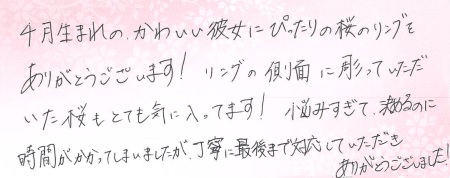 4月生まれの、かわいい彼女にぴったりの桜のリングを
ありがとうございます! リングの側面に彫っていただ
いた桜もとても気に入ってます! 悩みすぎて、決めるのに
時間がかかってしまいましたが、丁寧に最後まで対応していただき
ありがとうございました!